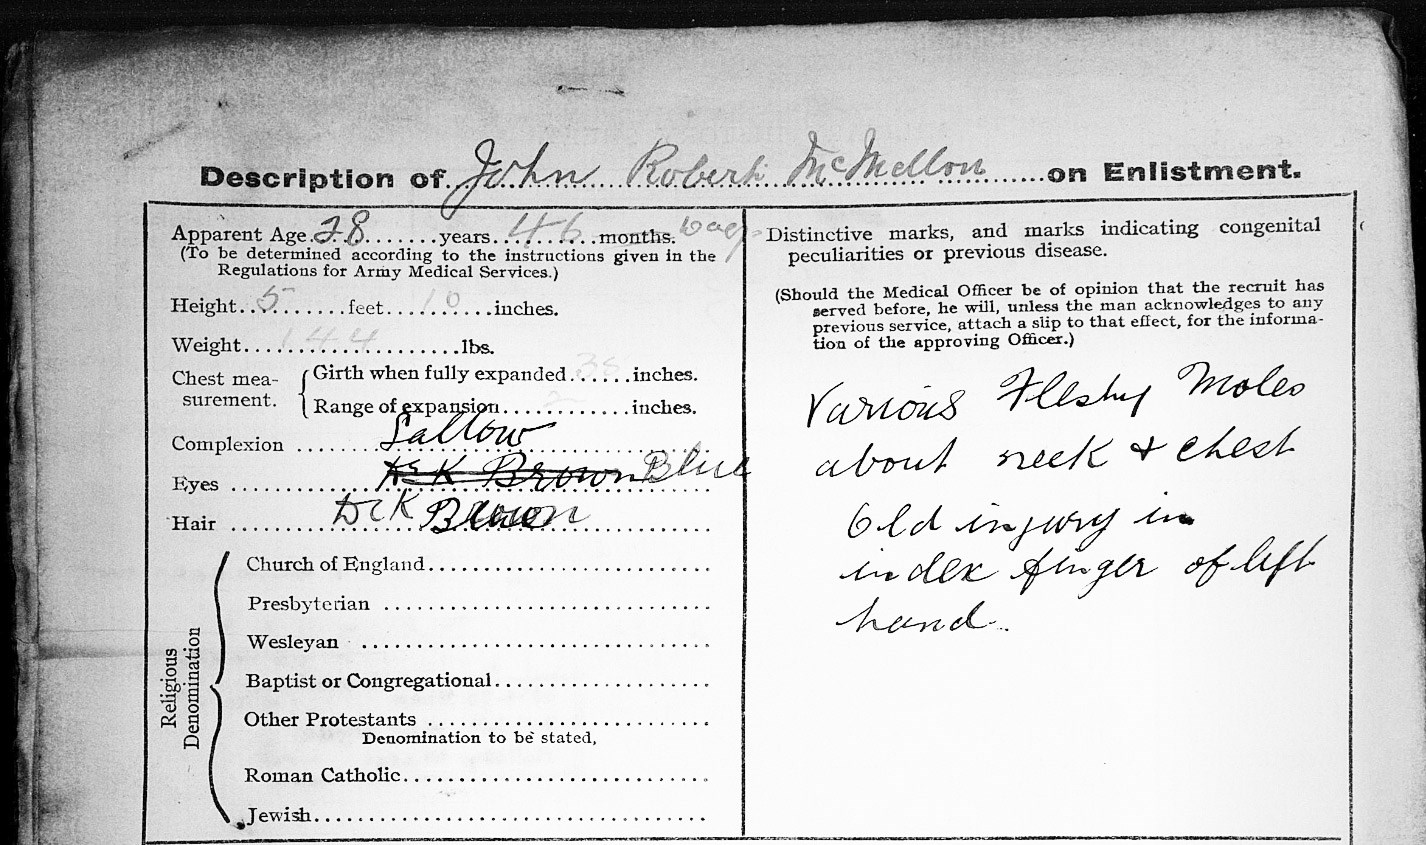 Description of John Robert McMellon on Enlistment.
Apparent Age 28 years 46 months. Days
(To be determined according to the instructions given in the
Regulations for Army Medical Services.)
Height 5 feet 10 inches.
Weight 144 lbs.
Chest mea-
surement.
Girth when fully expanded 38 inches.
Range of expansion 2 inches.
Complexion Sallow
Eyes Dk Brown Blue
Hair Dck Brown
Religious
Denomination
Church of England
Presbyterian
Wesleyan
Baptist or Congregational
Other Protestants
Denomination to be stated,
Roman Catholic
Jewish
Distinctive marks, and marks indicating congenital
peculiarities or previous disease.
(Should the Medical Officer be of opinion that the recruit has
served before, he will, unless the man acknowledges to any
previous service, attach a slip to that effect, for the informa-
tion of the approving Officer.)
Various Fleshy Moles
about neck & chest
Old injury in
index finger of left
hand.